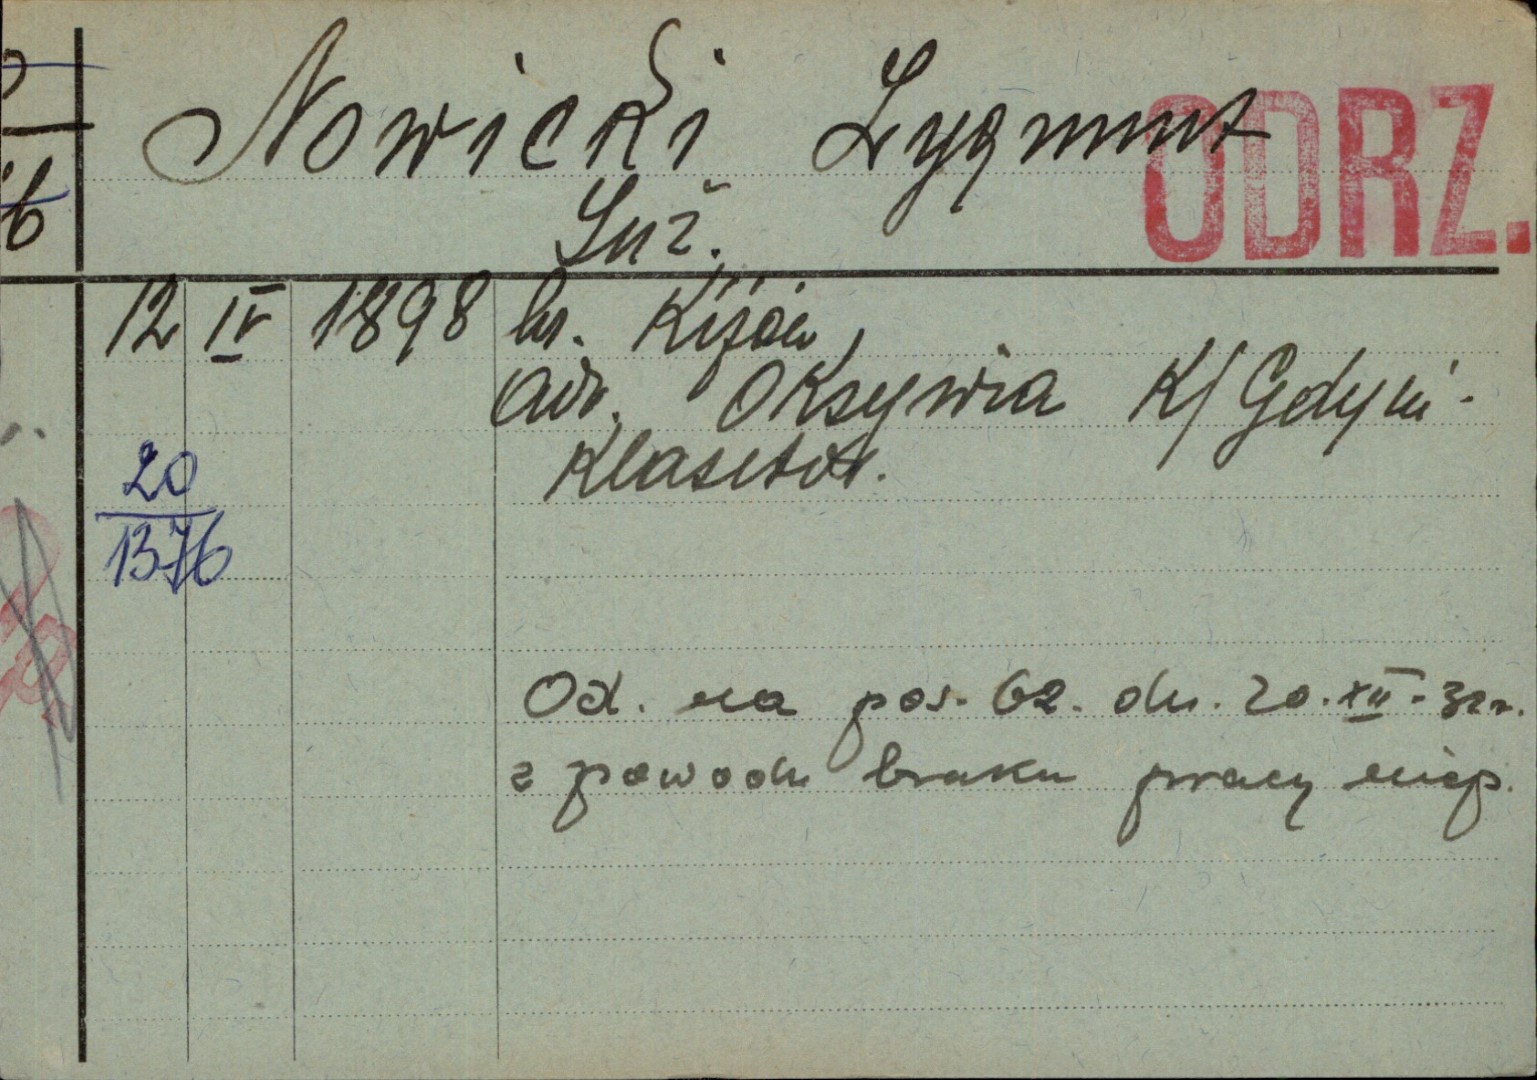 Nowicki Zygmunt
ODRZ.
Inż.
12 IV 1898 m. Kijów,
adr. Oksywia K/Gdyni-
20
1376
Od. na pos. 62. dn. 20.XII-32r.
z powodu braku pracy niep.